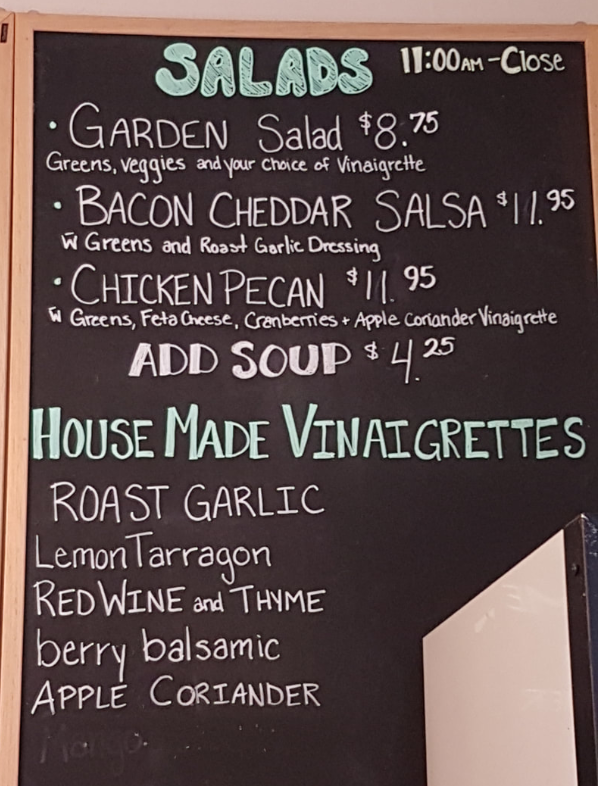 SALADS 11:00AM-Close
• GARDEN Salad $8.75
Greens, veggies and your choice of Vinaigrette
• BACON CHEDDAR SALSA $11.95
W Greens and Roast Garlic Dressing
• CHICKEN PECAN $11.95
W Greens, Feta Cheese, Cranberries + Apple Coriander Vinaigrette
ADD SOUP $4.25
HOUSE MADE VINAIGRETTES
ROAST GARLIC
Lemon Tarragon
RED WINE and THYME
berry balsamic
APPLE CORIANDER
Mango